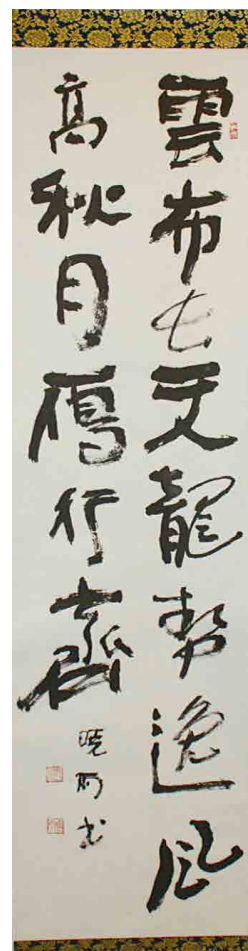 雲布長天龍勢逸風
高秋月鴈行齊
書